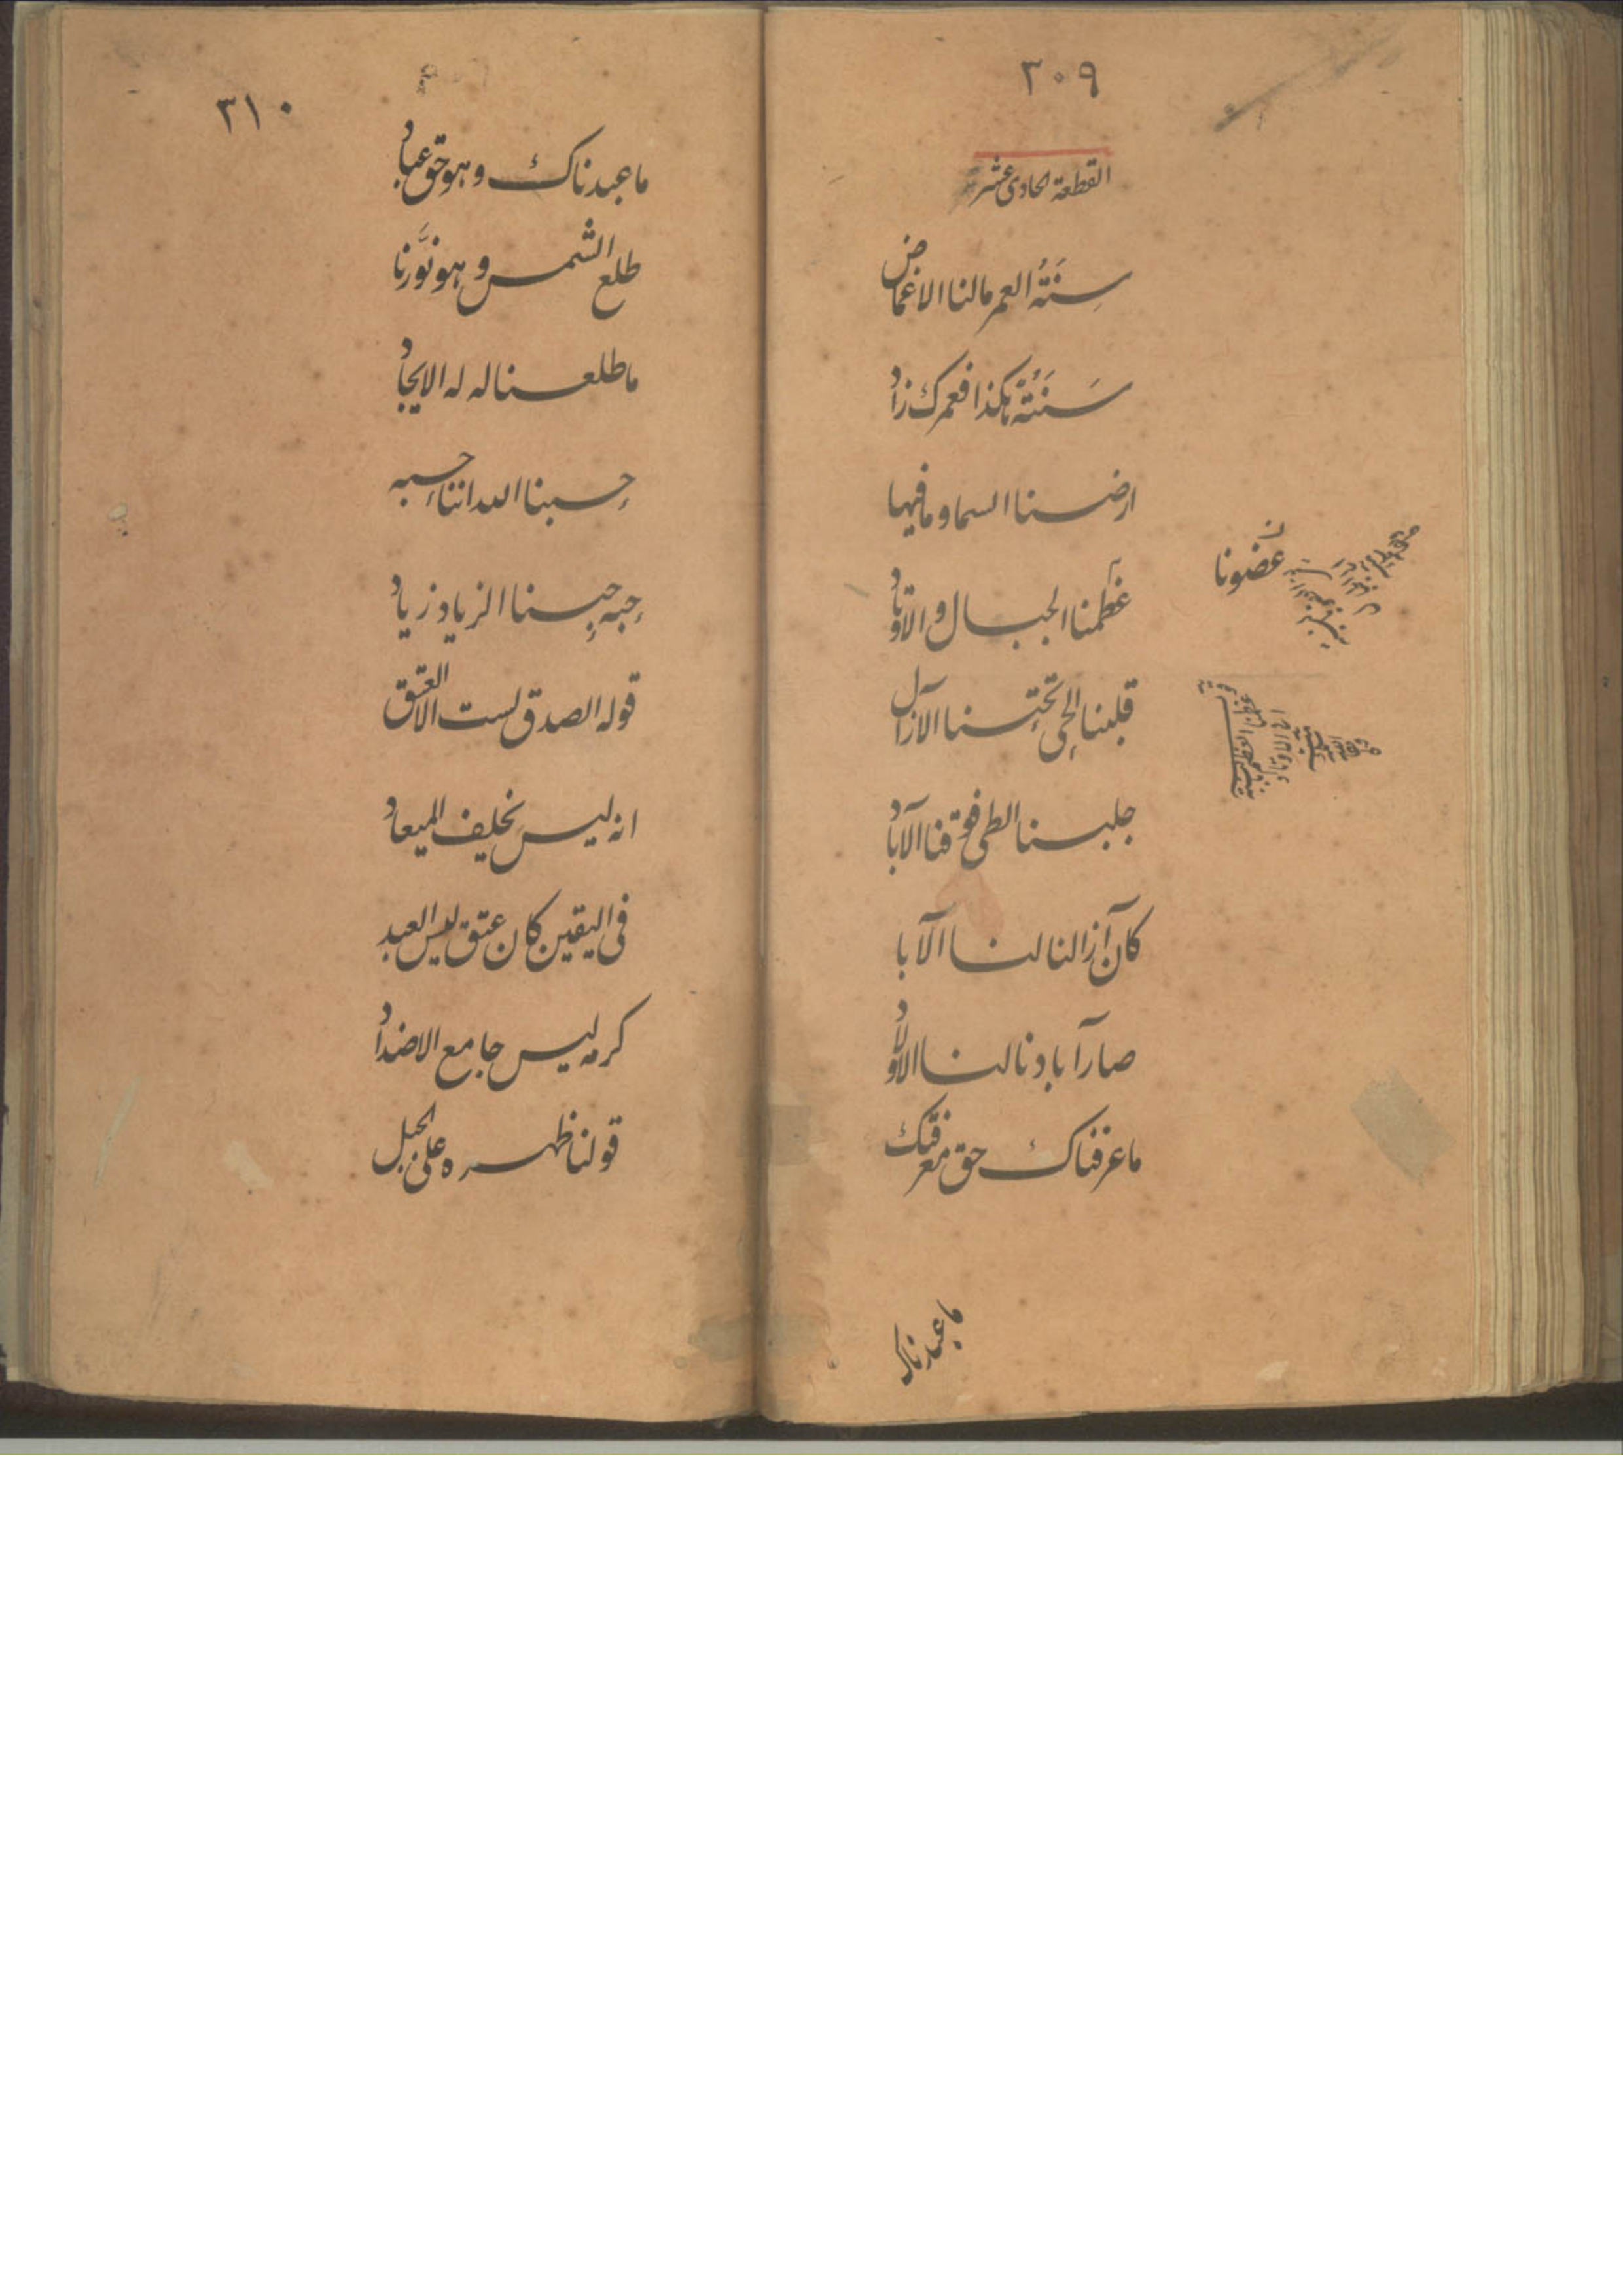 ٣٠٩
القطعة الحادی عشر
سِنَتُه العمر مالنا الاغماض
سَنَتُهٗ هكذا فعمرك زاد
ارضنا السما و مافيها
عظمنا الجبال و الاوتاد
عضونا ن
قلبنا الحی تحتنا الآزال
جلبنا الطی فوقنا الآباد
كان آزالنا لنا الآبا
صار آبادنا لنا الاولاد
ماعرفناك حق معرفتك
ماعبدناك
٣١٠
ماعبدناك و هو حق عباد
طلع الشمس و هو نوَّرنا
ماطلعنا له له الايجاد
حِسبنا الله اننا حِسبه
حِبه حِبنا الزياد زياد
قوله الصدق لست الا العتق
انه ليس نخلف الميعاد
فی اليقين كان عتق ليس العبد
كرمه ليس جامع الاضداد
قولنا ظهره علی الجبل